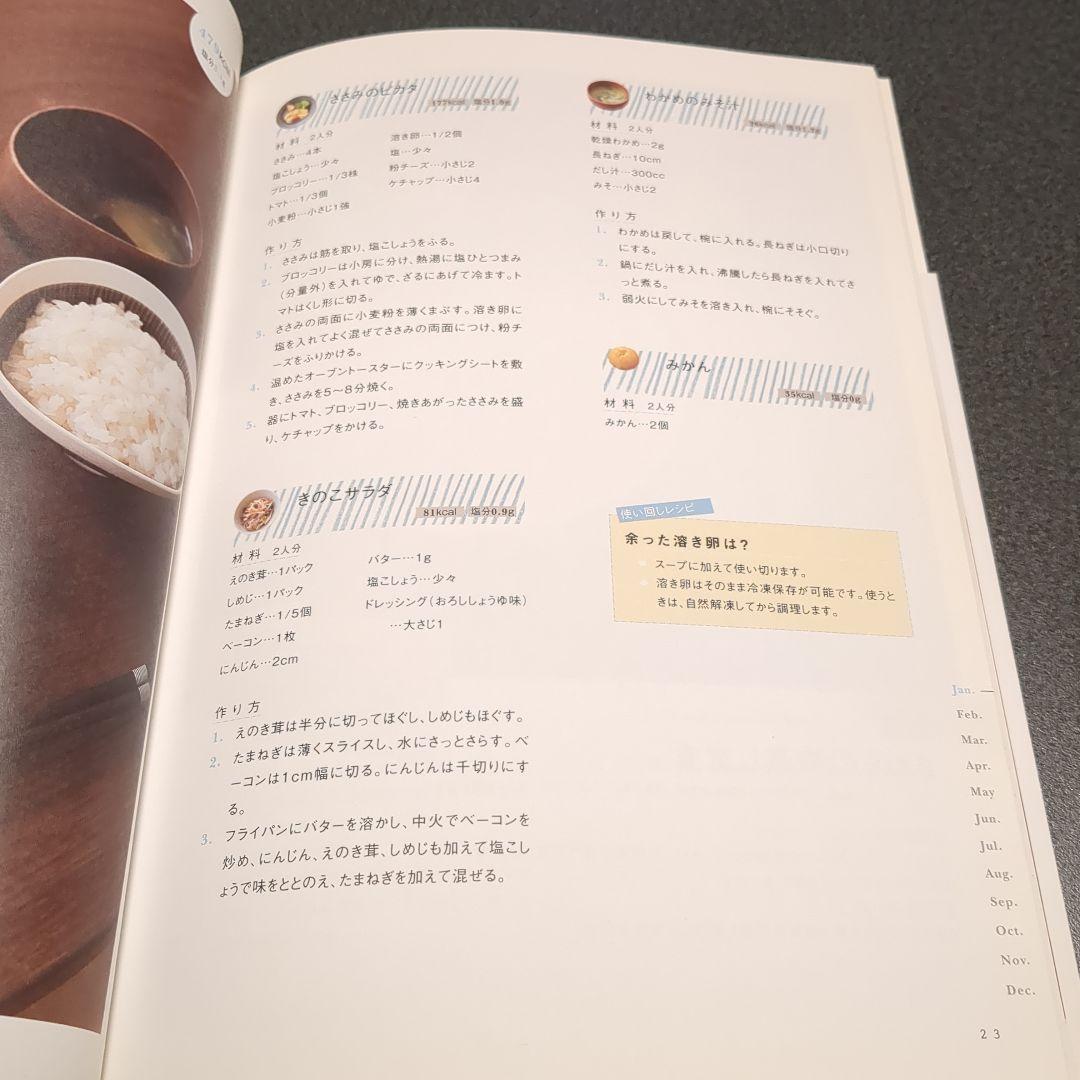 479kcal
ささみのピカタ
177kcal 塩分1.0g
材料 2人分
ささみ…4本
塩こしょう…少々
ブロッコリー…1/3株
トマト…1/3個
小麦粉…小さじ1強
溶き卵…1/2個
塩…少々
粉チーズ…小さじ2
ケチャップ…小さじ4
作り方
1. ささみは筋を取り、塩こしょうをふる。
2. ブロッコリーは小房に分け、熱湯に塩ひとつまみ
(分量外)を入れてゆで、ざるにあげて冷ます。ト
マトはくし形に切る。
3. ささみの両面に小麦粉を薄くまぶす。溶き卵に
塩を入れてよく混ぜてささみの両面につけ、粉チ
ーズをふりかける。
4. 温めたオーブントースターにクッキングシートを敷
き、ささみを5〜8分焼く。
5. 器にトマト、ブロッコリー、焼きあがったささみを盛
り、ケチャップをかける。
きのこサラダ
81kcal 塩分0.9g
材料 2人分
えのき茸…1パック
しめじ…1パック
たまねぎ…1/5個
ベーコン…1枚
にんじん…2cm
バター…1g
塩こしょう…少々
ドレッシング(おろししょうゆ味)
…大さじ1
作り方
1. えのき茸は半分に切ってほぐし、しめじもほぐす。
2. たまねぎは薄くスライスし、水にさっとさらす。ベ
ーコンは1cm幅に切る。にんじんは千切りにす
る。
3. フライパンにバターを溶かし、中火でベーコンを
炒め、にんじん、えのき茸、しめじも加えて塩こし
ょうで味をととのえ、たまねぎを加えて混ぜる。
わかめのみそ汁
塩分1.3g
材料 2人分
乾燥わかめ…2g
長ねぎ…10cm
だし汁…300cc
みそ…小さじ2
作り方
1. わかめは戻して、椀に入れる。長ねぎは小口切り
にする。
2. 鍋にだし汁を入れ、沸騰したら長ねぎを入れてさ
っと煮る。
3. 弱火にしてみそを溶き入れ、椀にそそぐ。
みかん
35kcal 塩分0g
材料 2人分
みかん…2個
使い回しレシピ
余った溶き卵は?
スープに加えて使い切ります。
溶き卵はそのまま冷凍保存が可能です。使うと
きは、自然解凍してから調理します。
Jan.
Feb.
Mar.
Apr.
May
Jun.
Jul.
Aug.
Sep.
Oct.
Nov.
Dec.
23